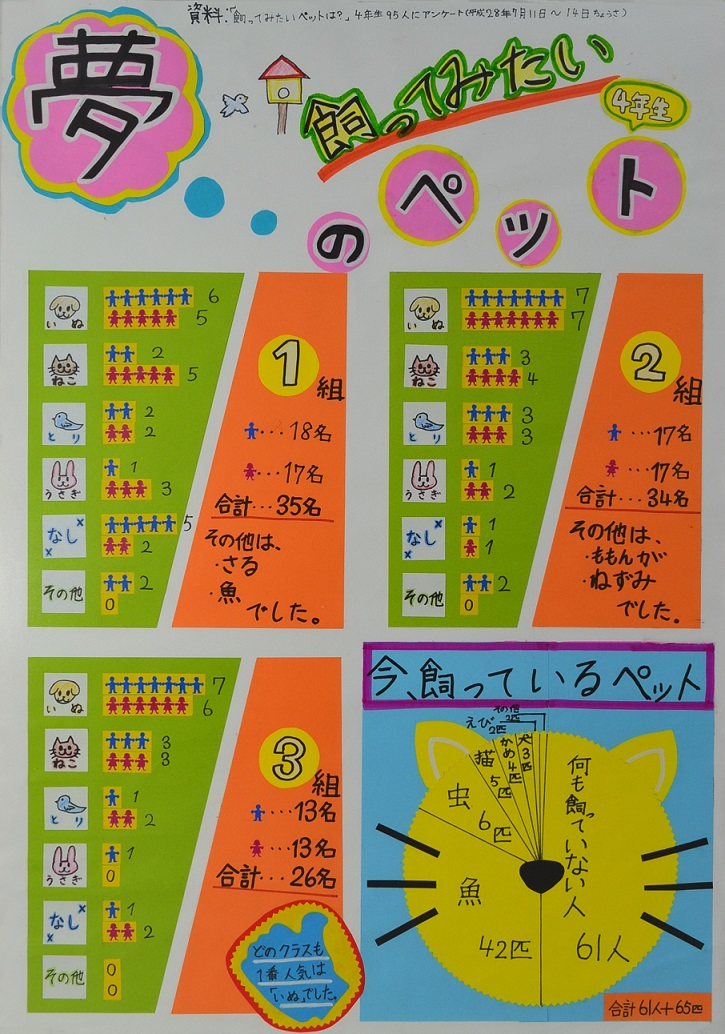 資料:「飼ってみたいペットは?」4年生95人にアンケート(平成28年7月11日〜14日ちょうさ)
夢
飼ってみたい
4年生
のペット
いぬ 6
5
ねこ 2
5
とり 2
2
うさぎ 1
3
なし 5
2
その他 2
0
1組
…18名
…17名
合計…35名
その他は、
・さる
・魚
でした。
いぬ 7
7
ねこ 3
4
とり 3
3
うさぎ 1
2
なし 1
1
その他 2
0
2組
…17名
…17名
合計…34名
その他は、
・ももんが
・ねずみ
でした。
いぬ 7
6
ねこ 3
3
とり 1
2
うさぎ 1
0
なし 1
2
その他 0
0
3組
…13名
…13名
合計…26名
どのクラスも
1番人気は
「いぬ」でした。
今、飼っているペット
その他2匹
えび2匹
犬3匹
かめ4匹
猫5匹
虫6匹
魚42匹
何も飼っていない人
61人
合計61人+65匹